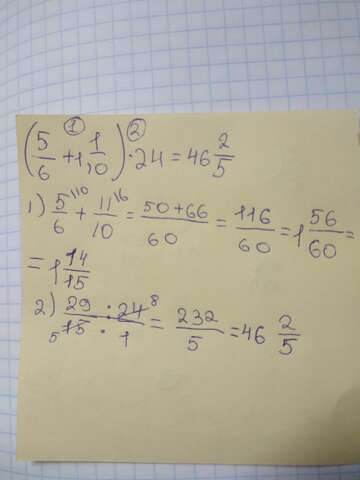 (5/6 + 1 1/10) · 24 = 46 2/5
① ②
1) 5/6 ^\10 + 11/10 ^\6 = 50+66/60 = 116/60 = 1 56/60 =
= 1 14/15
2) 29 · 24 8/5 15 · 1 = 232/5 = 46 2/5